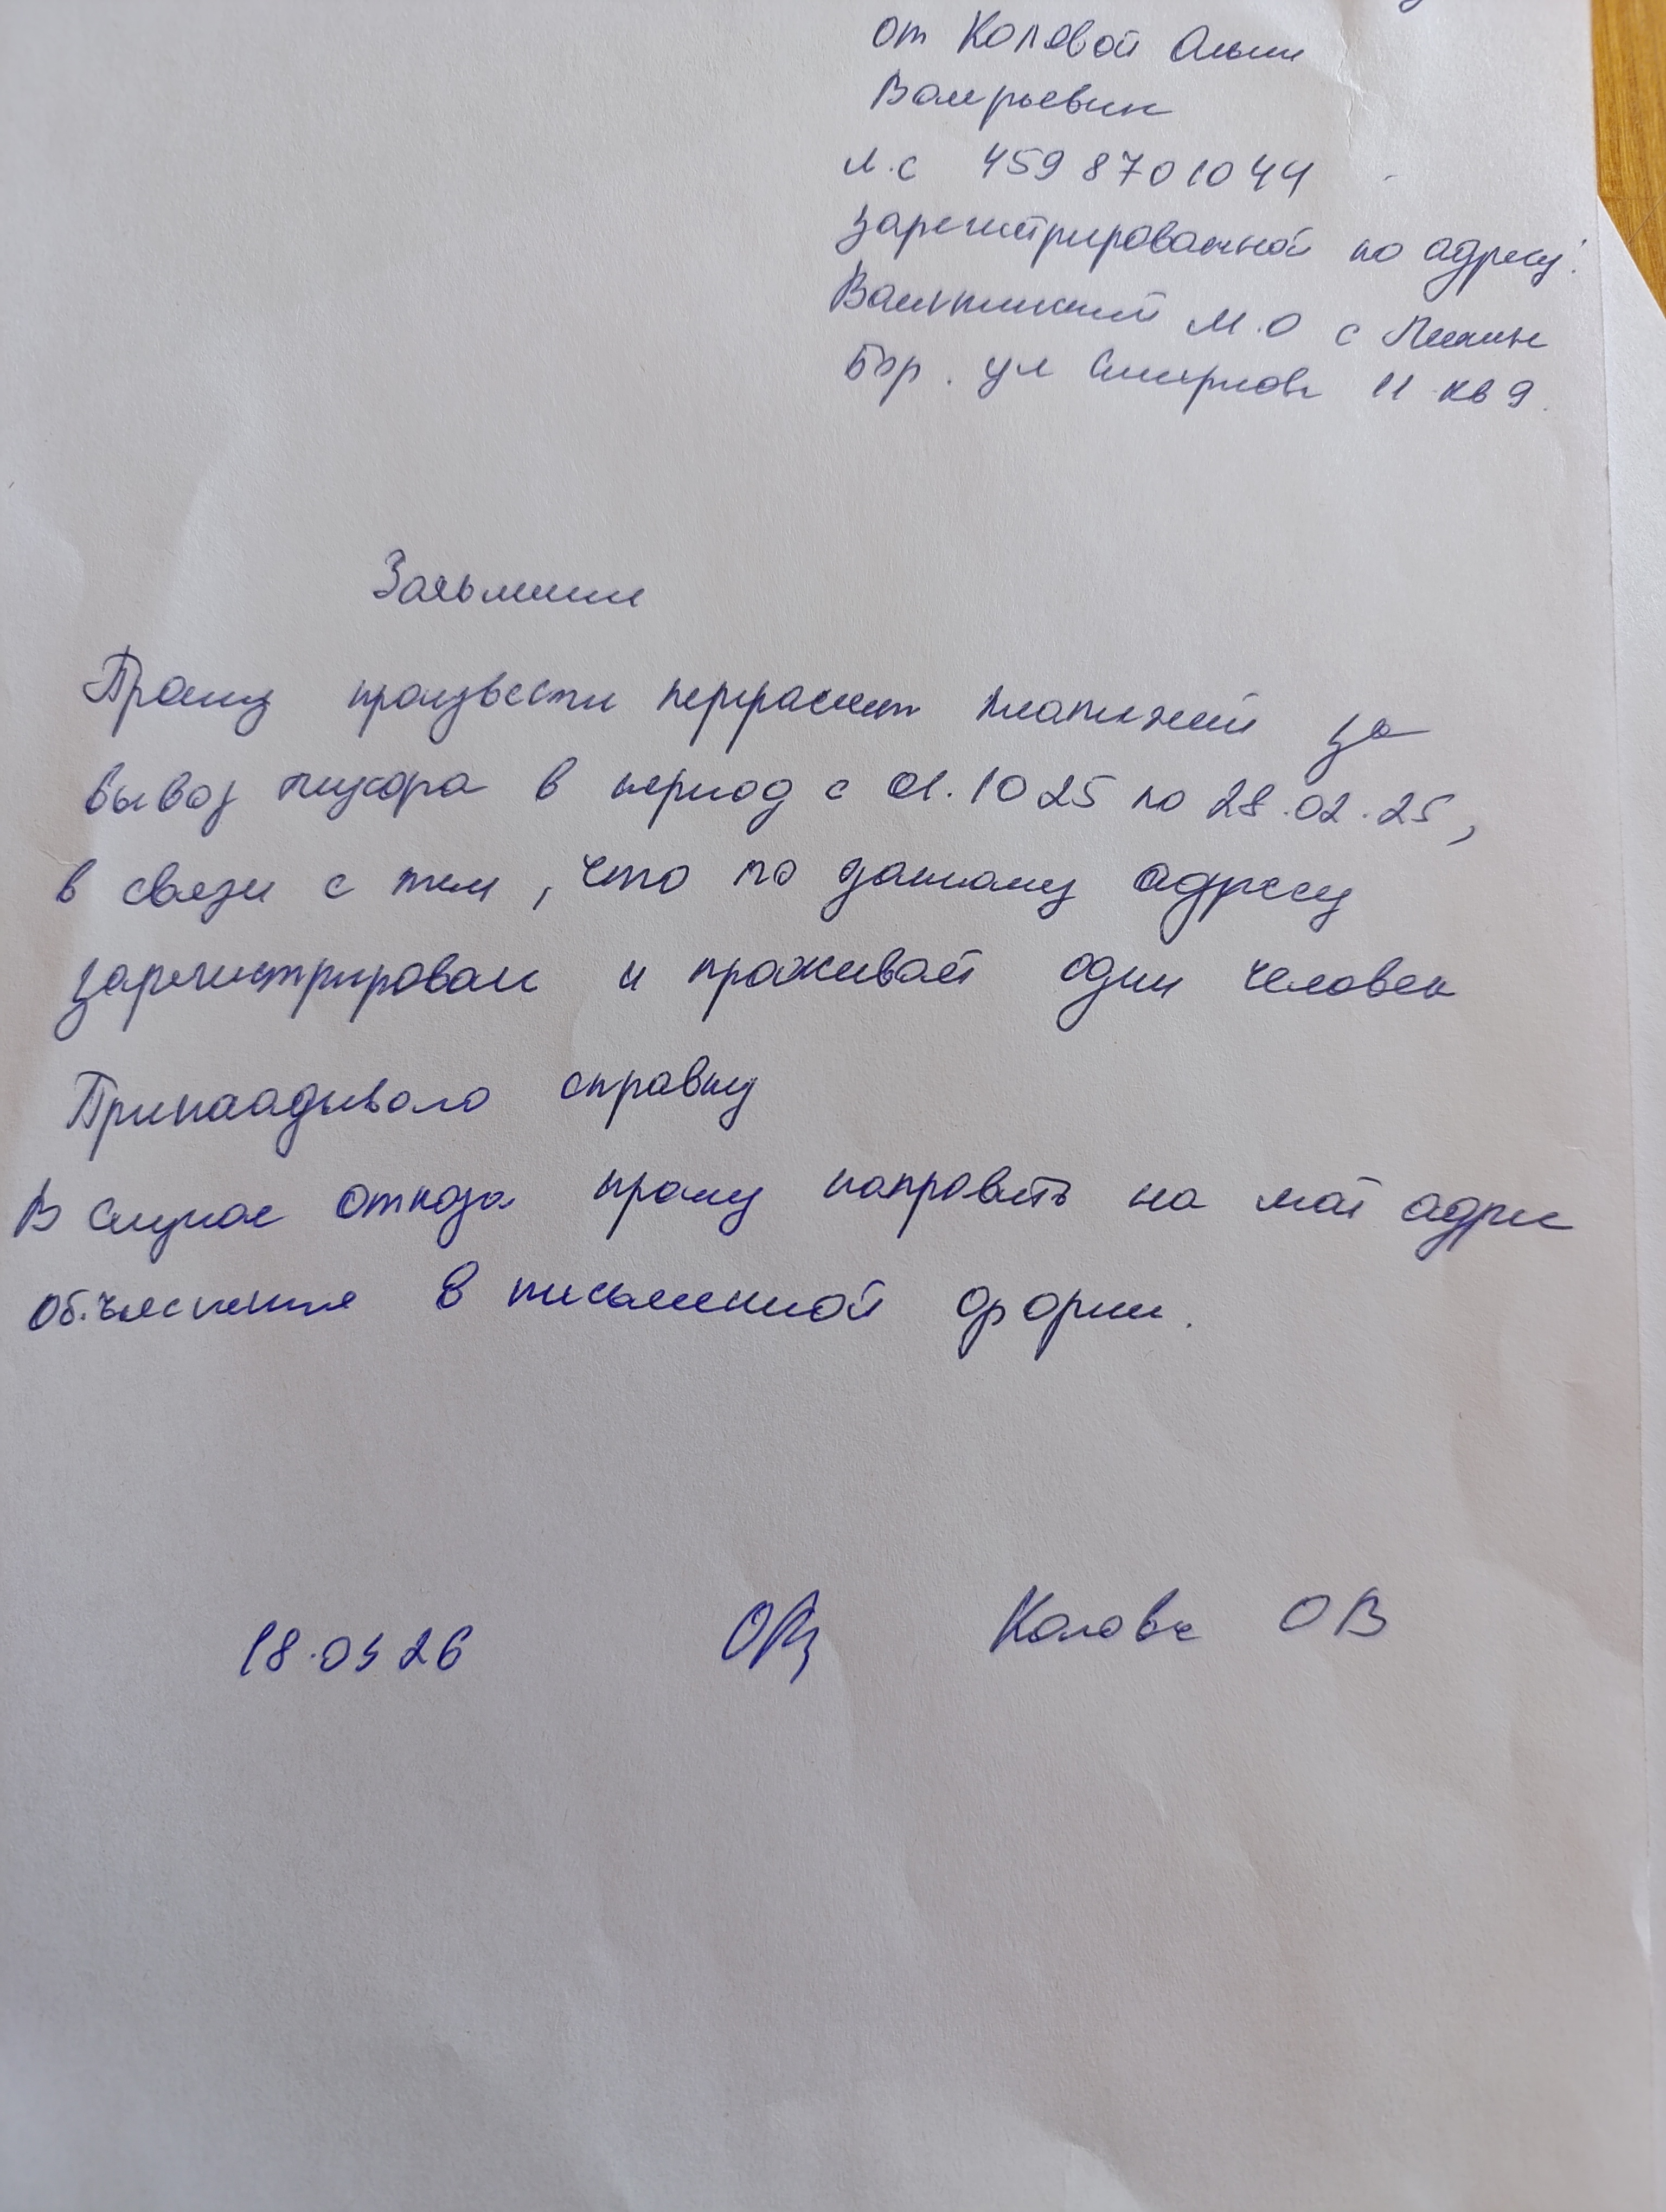 от Коловой Ольги
Валерьевны
л.с 4598701044
зарегистрированной по адресу:
М.О с
бор. ул Смирнова 11 кв 9.
Заявление
Прошу произвести перерасчет платежей за
вывоз мусора в период с 01.10 25 по 28.02.25,
в связи с тем, что по данному адресу
зарегистрирован и проживает один человек
Прикладываю справку
В случае отказа прошу направить на мой адрес
объяснения в письменной форме.
18.03 26 Колова ОВ